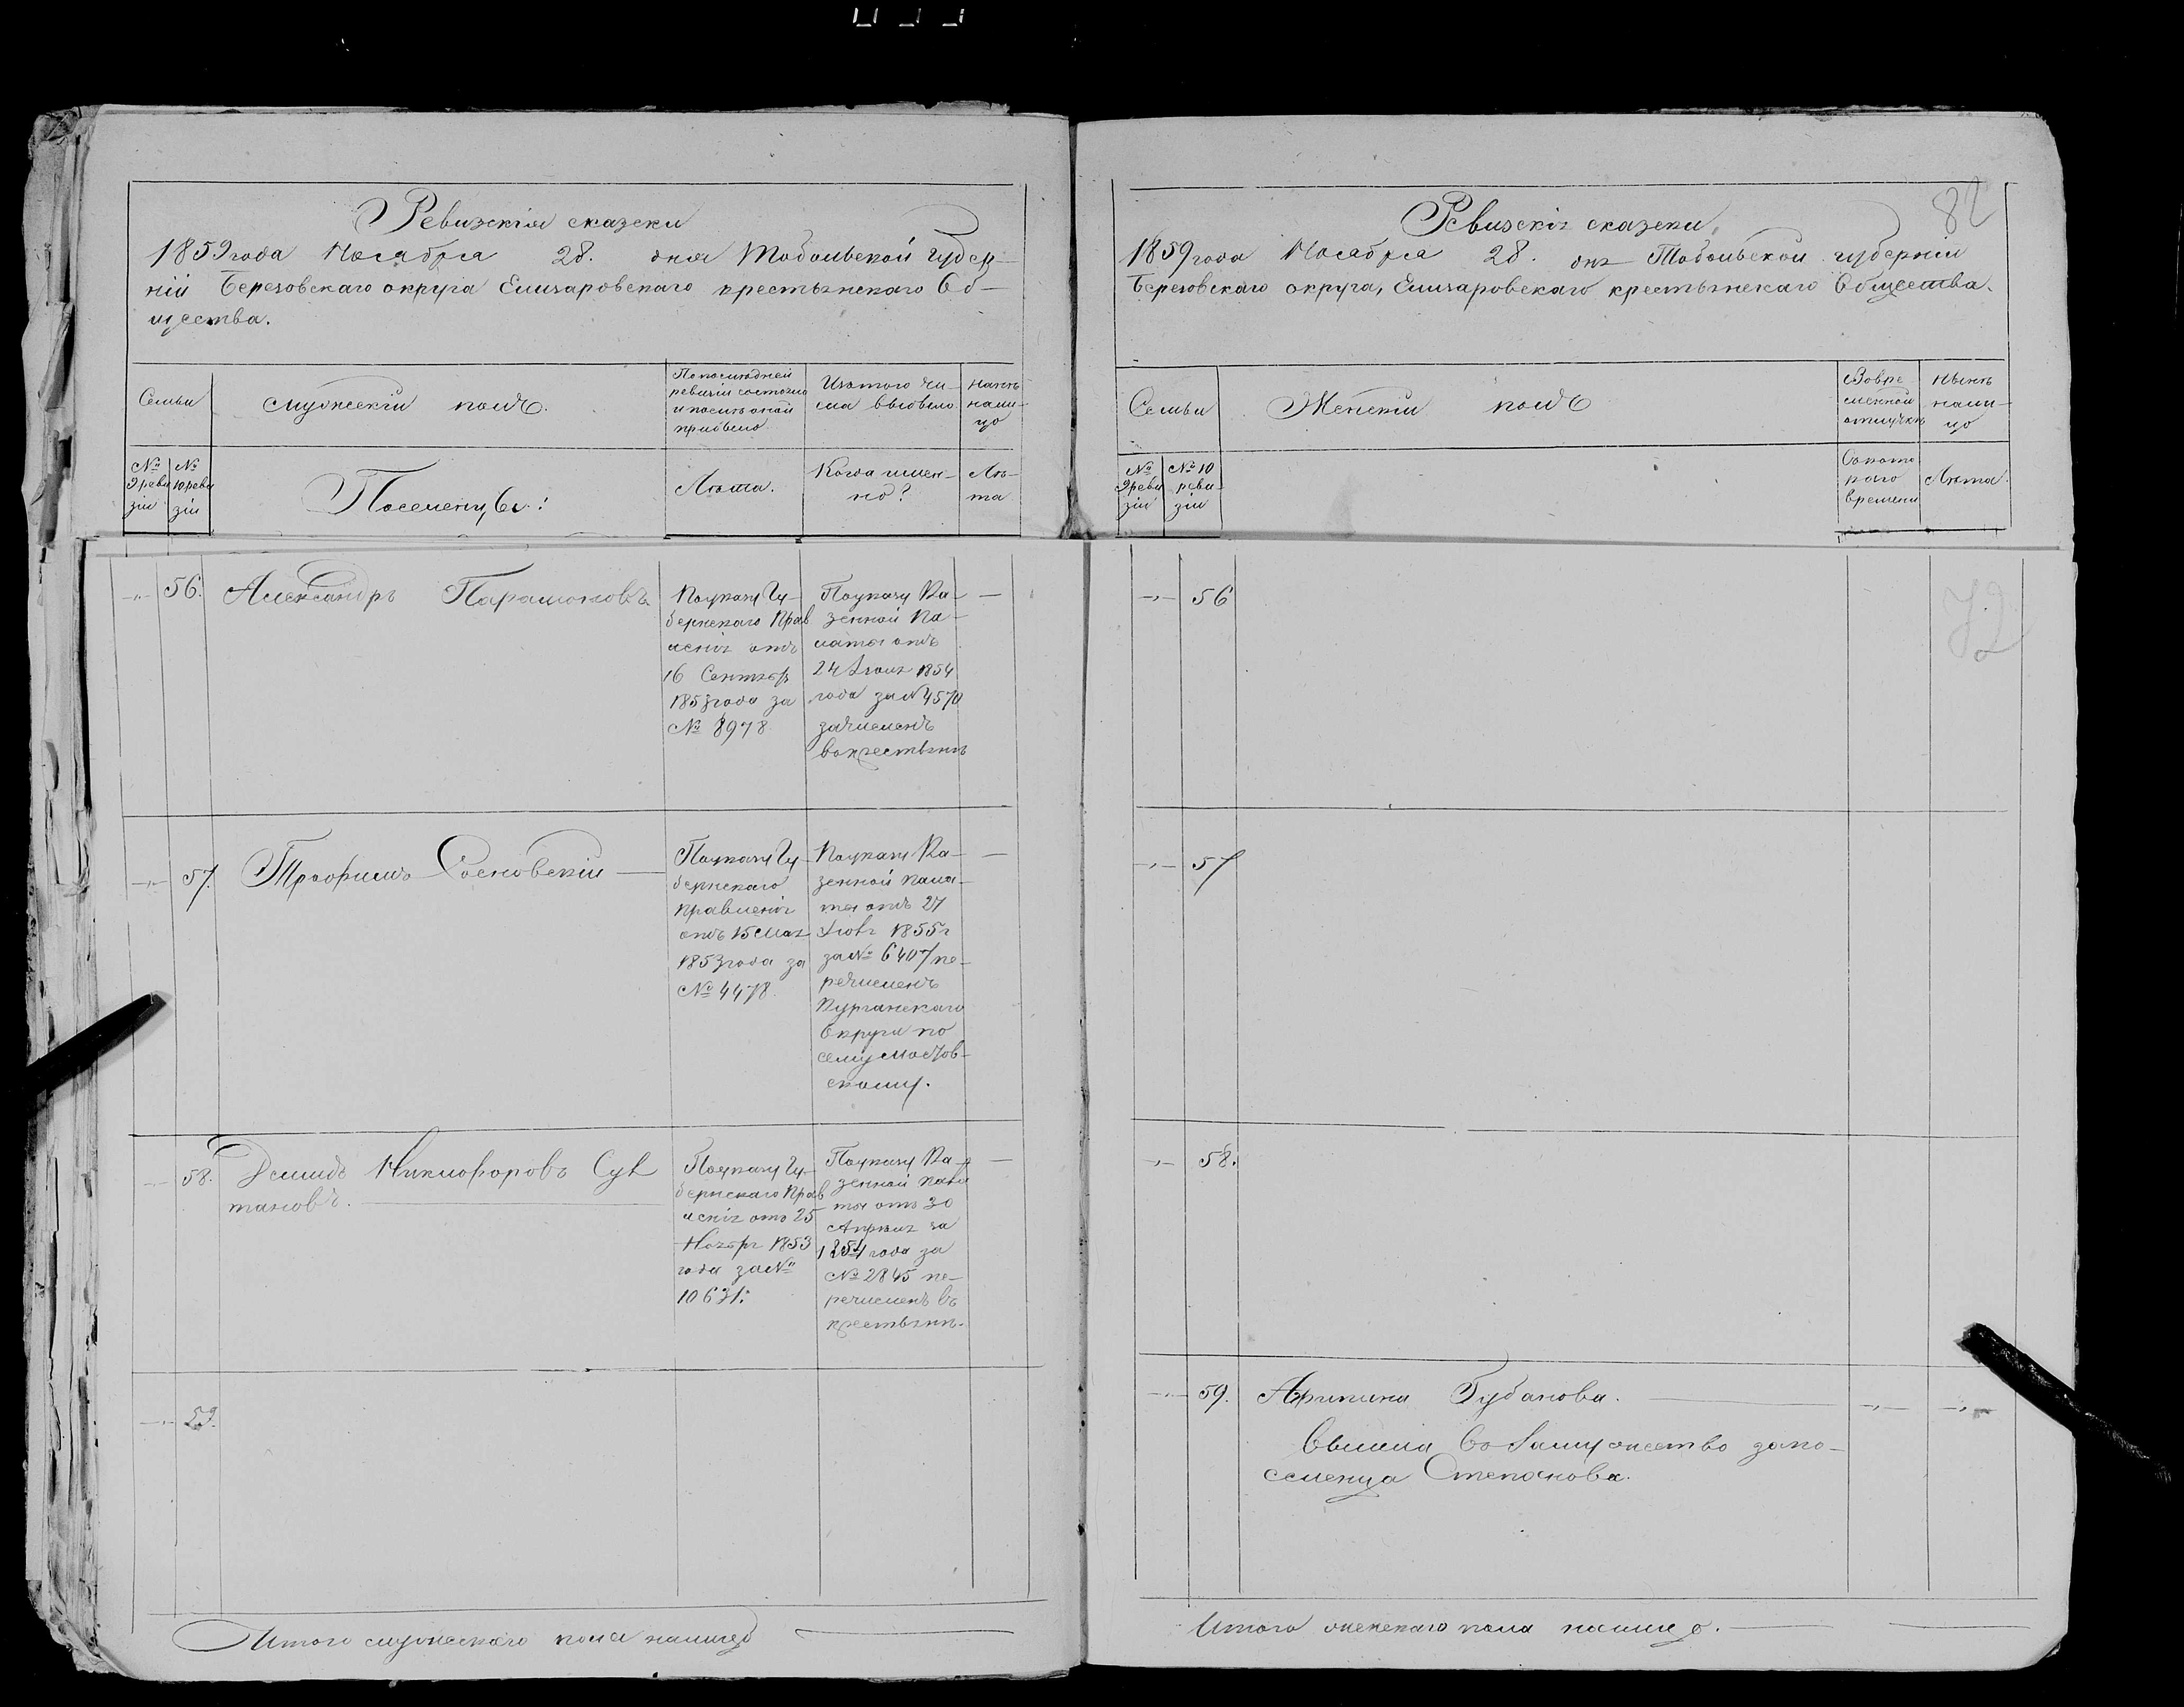 Ревизскія сказки
1859 года Ноября 28. дня Тобольской губер-
ніи Березовскаго округа Елизаровскаго крестьянскаго Об-
щества.
Семьи
Мужескій полъ.
По последней
ревизіи состояло
и после оной
прибыло
Изъ того чи-
сла выбыло
ныне
нали-
цо
№ 9 реви зіи
№ 10 реви зіи
Поселенцы:
Лета.
Когда имен-
но?
Ле-
та
56. Александръ Парамоновъ
По указу Гу-
бернскаго Прав
ленія отъ
16 Сентябр
1853 года за
№ 8978
По указу Ка-
зенной Па-
латы отъ
24 Іюля 1854
года за № 4570
зачисленъ
в крестьяне
57. Трофимъ Сосновскій
По указу Гу-
бернскаго
Правленія
отъ 15 Мая
1853 года за
№ 4478.
По указу Ка-
зенной Пала-
ты отъ 27
1855 г
за № 6407 пе-
речисленъ
Курганскаго
Округа по
селу Мостов-
скому.
58. Демидъ Никифоровъ Сул
тановъ.
По указу Гу-
бернскаго Прав
ленія отъ 25
Ноября 1853
года за №
10631.
По указу Ка-
зенной Пала
ты отъ 30
Апреля за
1854 года за
№ 2845 пе-
речисленъ въ
крестьяне.
59.
Итого мужескаго пола налицо
82
Ревизскія сказки,
1859 года Ноября 28. дня Тобольской губерніи
Березовскаго округа, Елизаровскаго крестьянскаго Общества.
Семьи
Женскій полъ
Во вре
менной
отлучке
Ныне
нали-
цо
№ 9 реви зіи
№ 10 реви зіи
Съ кото
раго
времени
Лета.
56
57
58.
59. Агрипина Губанова.
Вышла въ замужество за по-
селенца Степанова.
Итого женскаго пола налицо.